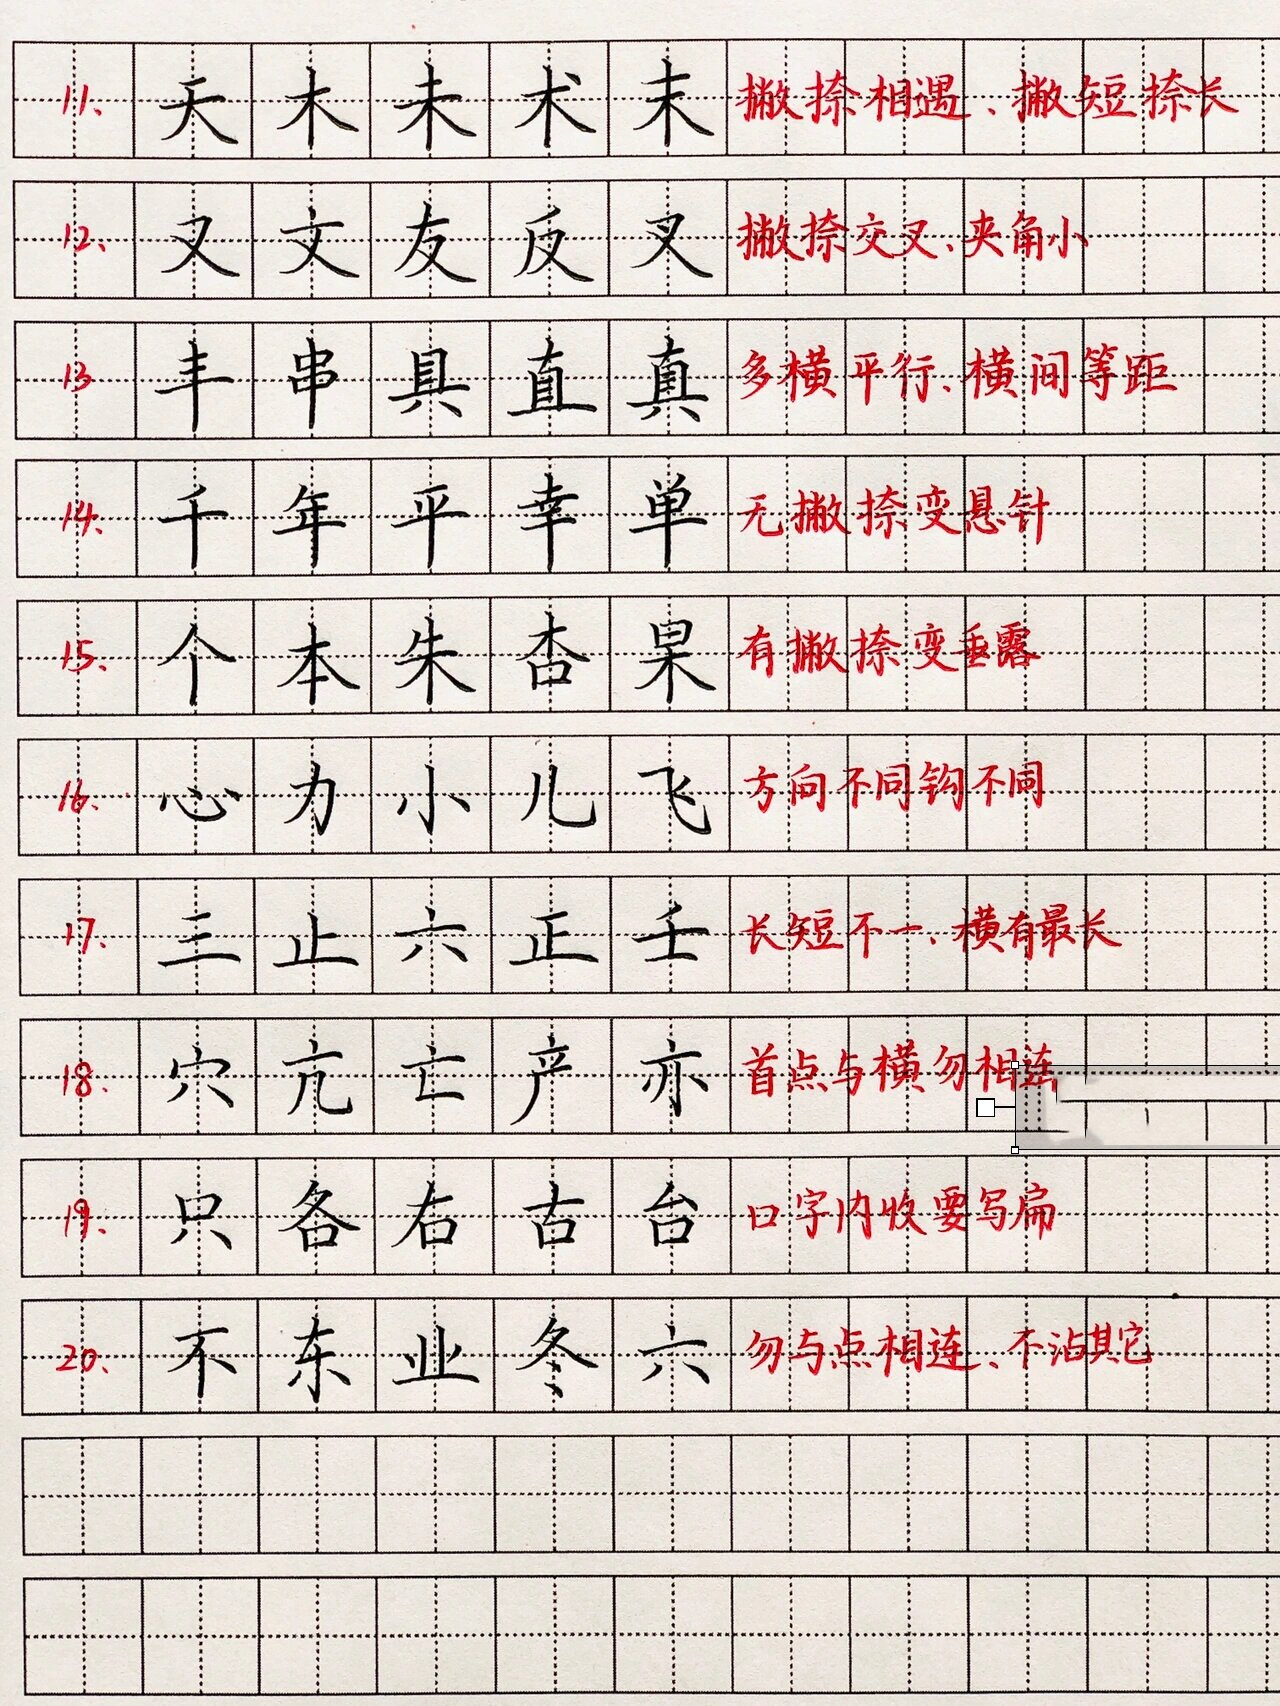 11、天木未术末 撇捺相遇、撇短捺长
12、又文友反叉 撇捺交叉、夹角小
13 丰串具直真 多横平行、横间等距
14、千年平幸单 无撇捺变悬针
15、个本朱杏果 有撇捺变垂露
16、心力小儿飞 方向不同钩不同
17、三止六正壬 长短不一、横有最长
18、穴亢亡产亦 首点与横勿相连
19、只各右古台 口字内收要写扁
20、不东业冬六 勿与点相连、不沾其它